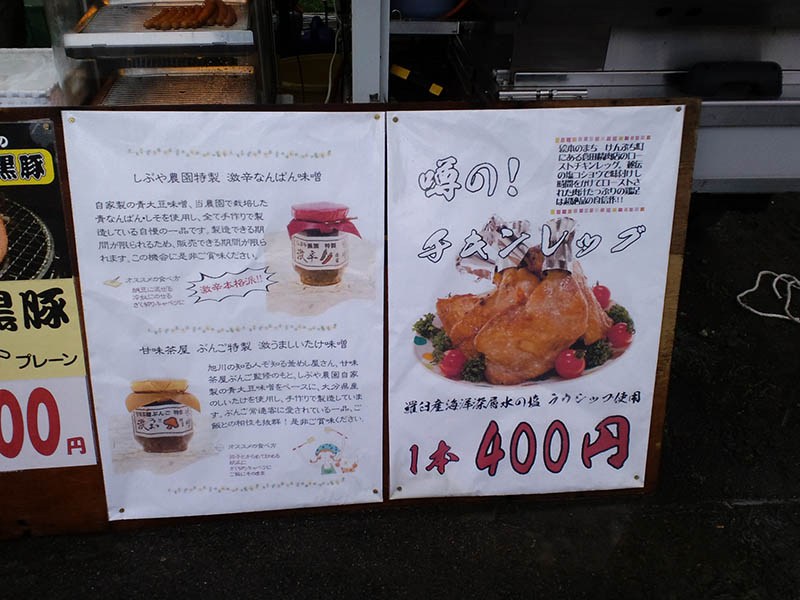 黒豚
黒豚
プレーン
00円
しぶや農園特製 激辛なんばん味噌
自家製の青大豆味噌、当農園で栽培した
青なんばん・しそを使用し、全て手作りで製
造している自慢の一品です。製造できる期
間が限られるため、販売できる期間が限ら
れます。この機会に是非ご賞味ください。
オススメの食べ方
納豆に混ぜる
冷奴にのせる
ざく切りキャベツに
激辛本格派!!
しぶや農園 特製
激辛
甘味茶屋 ぶんご特製 激うましいたけ味噌
旭川の知る人ぞ知る釜めし屋さん、甘味
茶屋ぶんご監修のもと、しぶや農園自家
製の青大豆味噌をベースに、大分県産
のしいたけを使用し、手作りで製造していま
す。ぶんご常連客に愛されている一品、ご
飯との相性も抜群!是非ご賞味ください。
甘味茶屋 ぶんご 特製
オススメの食べ方
ざく切りキャベツに
ご飯にそのまま
噂の!
チキンレッグ
絵本のまち けんぶち町
にある真田精肉店のロー
ストチキンレッグ。秘伝
の塩コショウで味付けし
時間をかけてローストさ
れた肉汁たっぷりの鶏足
は超絶品の自信作!!
羅臼産海洋深層水の塩 ラウシップ使用
1本 400円